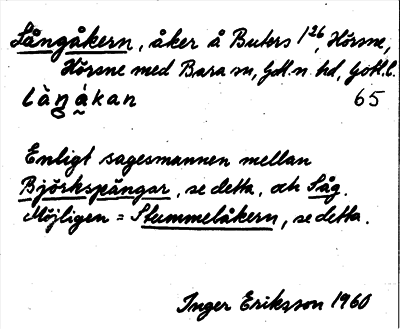 Långåkern, åker å Buters 1²⁶, Hörsne,
Hörsne med Bara sn, Gotl. n. hd, Gotl. l.
làŋákan 65
Enligt sagesmannen mellan
Björkspängar, se detta, och Såg.
Möjligen = Stummelåkern, se detta.
Inger Eriksson 1960